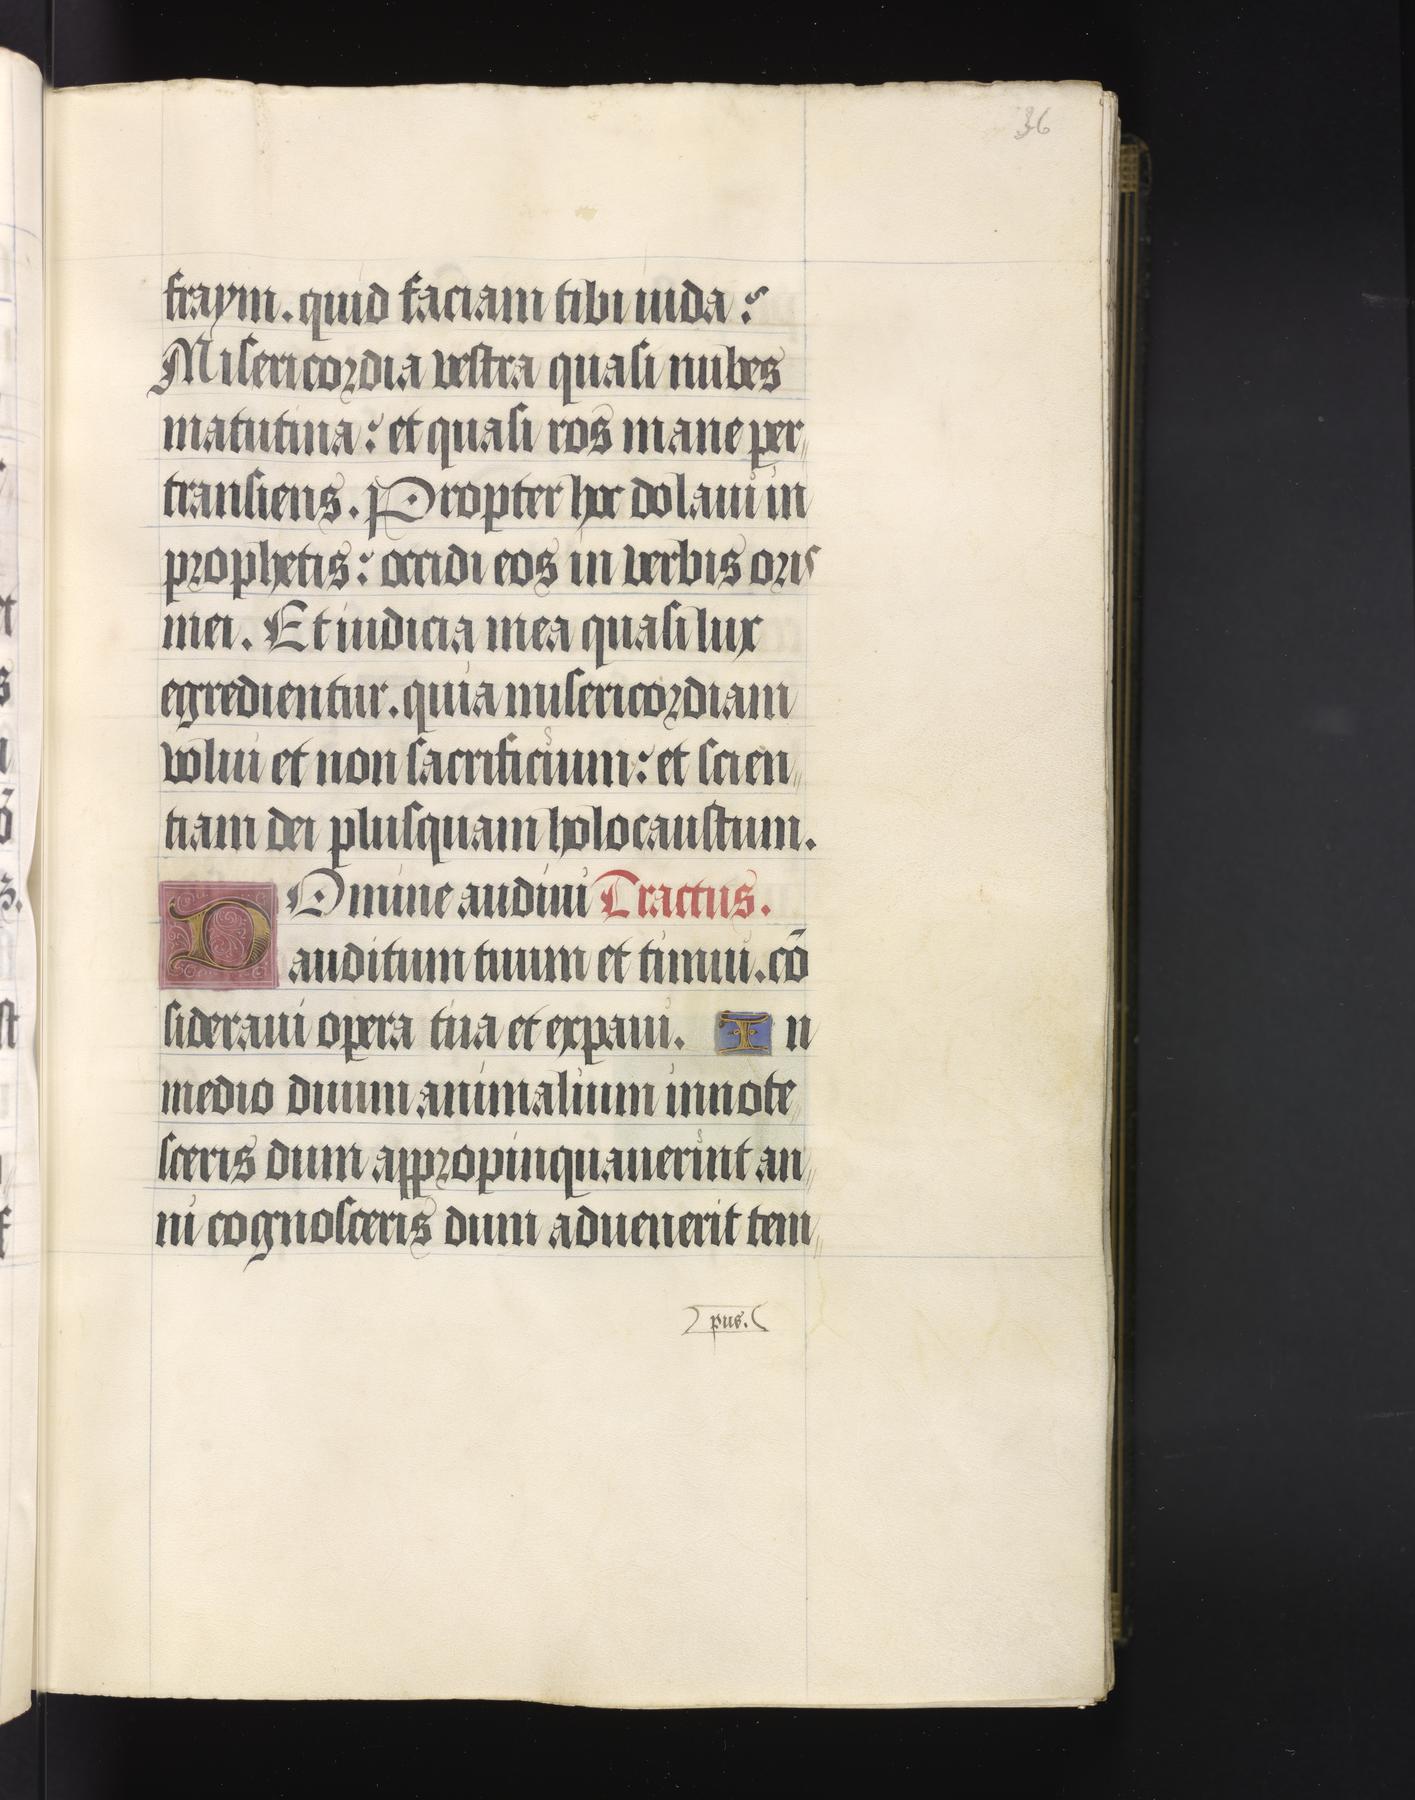 36
fraym. quid faciam tibi iuda?
Misericordia vestra quasi nubes
matutina: et quasi ros mane per,,
transiens. Propter hoc dolaui in
prophetis: occidi eos in verbis oris
mei. Et iudicia mea quasi lux
egredientur. quia misericordiam
volui et non sacrificium: et scien,,
tiam dei plusquam holocaustum.
DOmine audiui Tractus.
auditum tuum et timui. cō
sideraui opera tua et expaui. In
medio duum animalium innote,,
sceris dum appropinquauerint an,,
ni cognosceris dum aduenerit tem,,
pus.